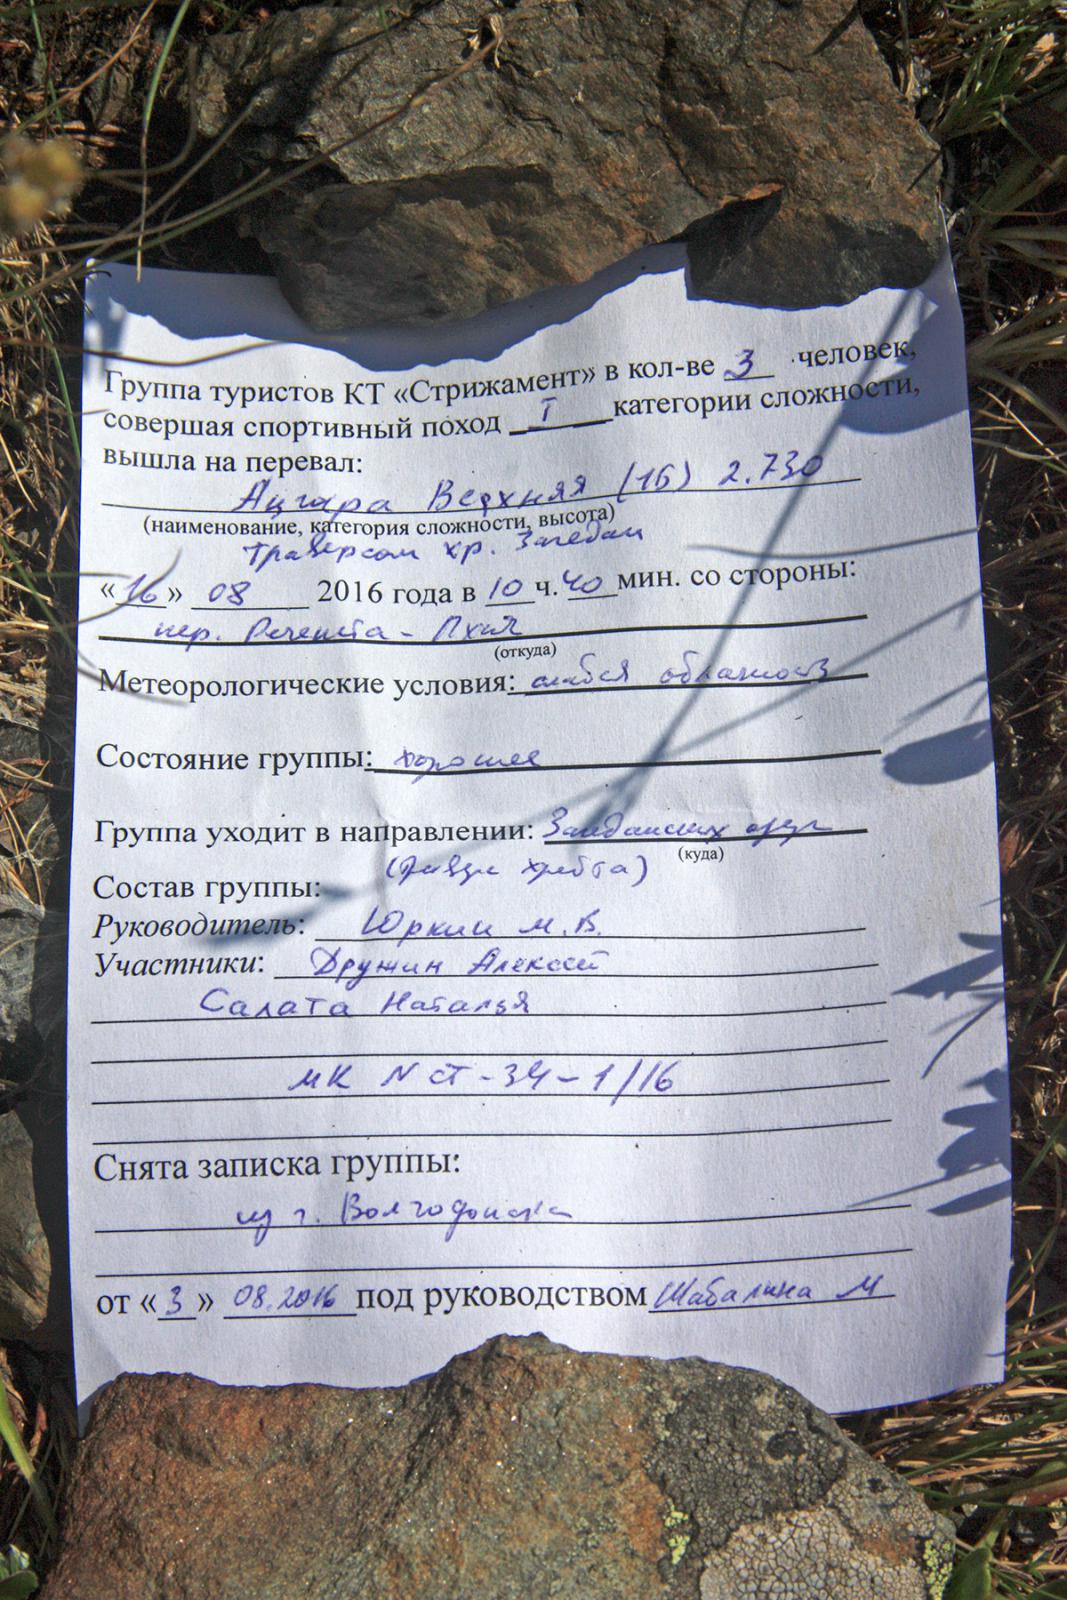 Группа туристов КТ «Стрижамент» в кол-ве 3 человек,
совершая спортивный поход I категории сложности,
вышла на перевал:
Ацгара Верхняя (1Б) 2.730
(наименование, категория сложности, высота)
Траверсом хр. Загедан
«16» 08 2016 года в 10 ч. 40 мин. со стороны:
пер. Речепста - Пхия
(откуда)
Метеорологические условия: слабая облачность
Состояние группы: хорошее
Группа уходит в направлении: 
(куда)
хребта)
Состав группы:
Руководитель: Юркин М.В.
Участники: Дружин Алексей
Салата Наталья
МК N СТ-34-1/16
Снята записка группы:
из г. Волгодонска
от «3» 08.2016 под руководством Шабалина М